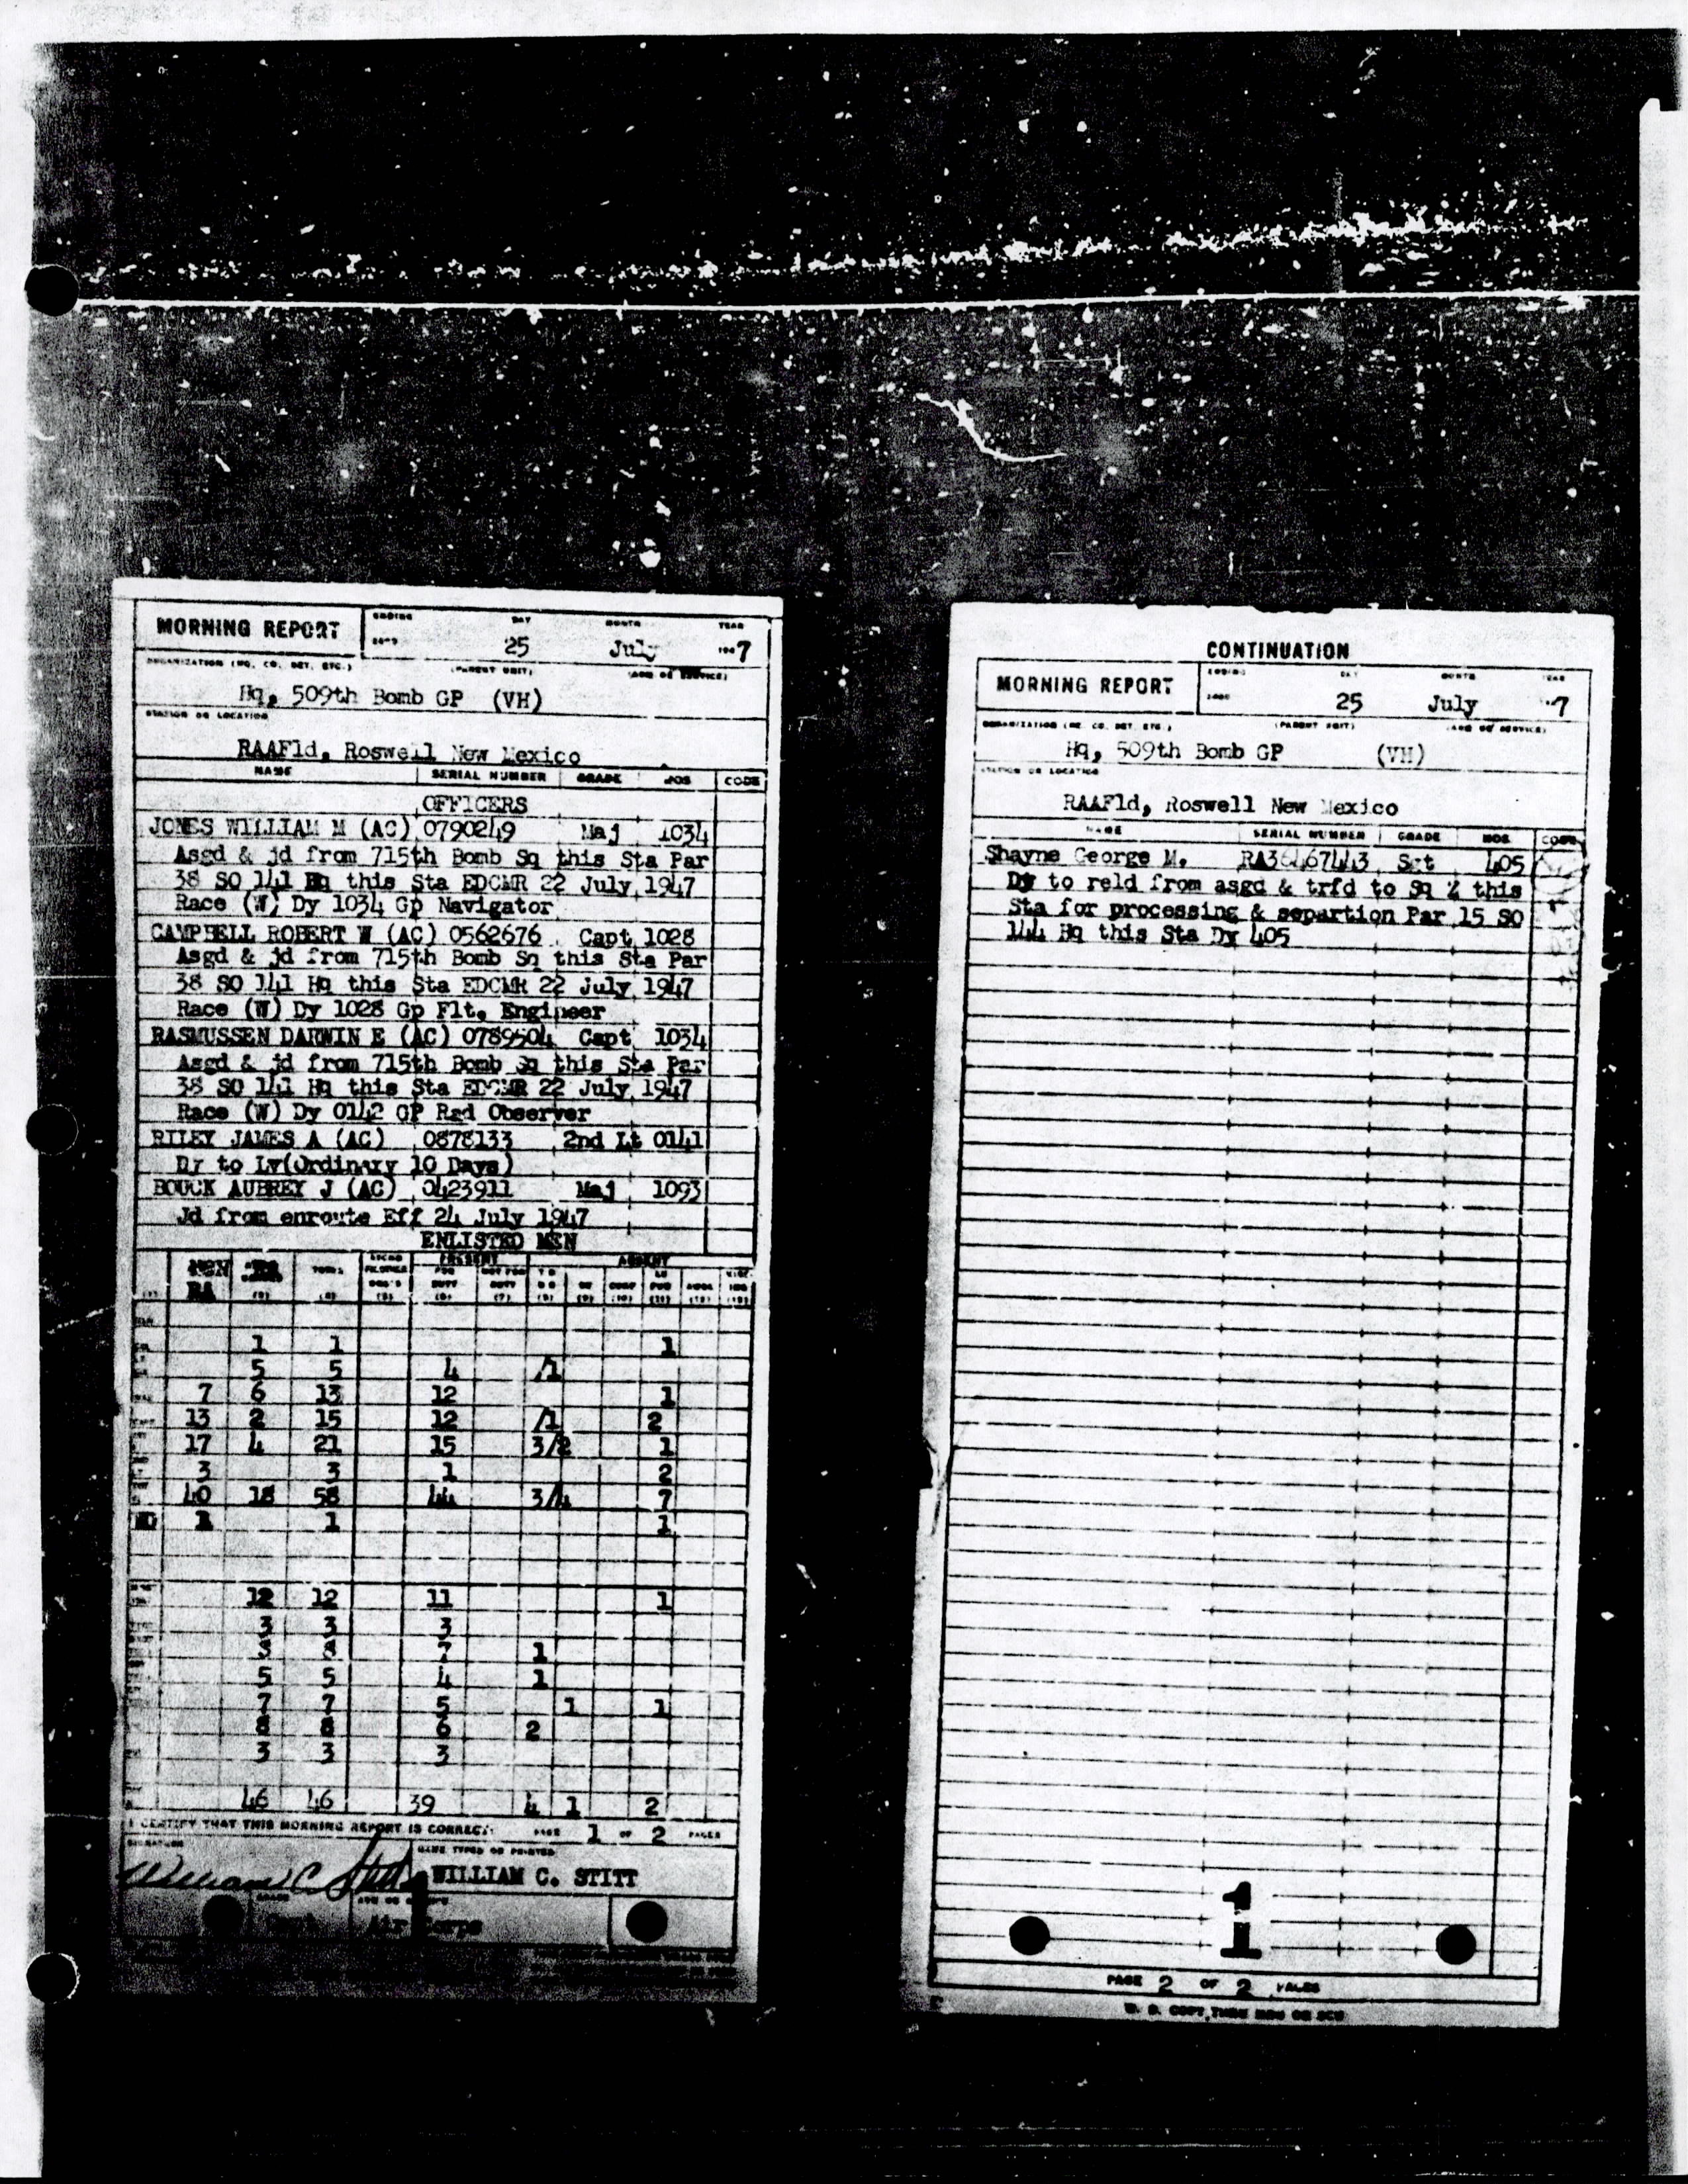 MORNING REPORT
ENDING DAY MONTH YEAR
25 July 1947
ORGANIZATION (HQ. CO. DET. ETC.) (PARENT UNIT) (ARM OR SERVICE)
Hq, 509th Bomb GP (VH)
STATION OR LOCATION
RAAFld, Roswell New Mexico
NAME SERIAL NUMBER GRADE MOS CODE
OFFICERS
JONES WILLIAM M (AC) 0790249 Maj 1034
Asgd & jd from 715th Bomb Sq this Sta Par
38 SO 141 Hq this Sta EDCMR 22 July 1947
Race (W) Dy 1034 Gp Navigator
CAMPBELL ROBERT W (AC) 0562676 Capt 1028
Asgd & jd from 715th Bomb Sq this Sta Par
38 SO 141 Hq this Sta EDCMR 22 July 1947
Race (W) Dy 1028 Gp Flt. Engineer
RASMUSSEN DARWIN E (AC) 0789504 Capt 1034
Asgd & jd from 715th Bomb Sq this Sta Par
38 SO 141 Hq this Sta EDCMR 22 July 1947
Race (W) Dy 0142 GP Rad Observer
RILEY JAMES A (AC) 0878133 2nd Lt 0141
Dy to Lv(Ordinary 10 Days)
BOUCK AUBREY J (AC) 0423911 Maj 1093
Jd from enroute Eff 24 July 1947
ENLISTED MEN
PRESENT ABSENT
RA
1 1 1
5 5 4 /1
7 6 13 12 1
13 2 15 12 /1 2
17 4 21 15 3/2 1
3 3 1 2
40 18 58 44 3/4 7
1 1 1
12 12 11 1
3 3 3
8 8 7 1
5 5 4 1
7 7 5 1 1
8 8 6 2
3 3 3
46 46 39 4 1 2
I CERTIFY THAT THIS MORNING REPORT IS CORRECT. PAGE 1 OF 2 PAGES
SIGNATURE NAME TYPED OR PRINTED
William C. Stitt WILLIAM C. STITT
GRADE ARM OR SERVICE
Capt Air Corps
CONTINUATION
MORNING REPORT
ENDING DAY MONTH YEAR
25 July 7
ORGANIZATION (HQ. CO. DET. ETC.) (PARENT UNIT) (ARM OR SERVICE)
Hq, 509th Bomb GP (VH)
STATION OR LOCATION
RAAFld, Roswell New Mexico
NAME SERIAL NUMBER GRADE MOS CODE
Shayne George M. RA36467443 Sgt 405
Dy to reld from asgd & trfd to Sq & this
Sta for processing & separtion Par 15 SO
144 Hq this Sta Dy 405
1
PAGE 2 OF 2 PAGES
W. D. COPY THRU MRU OR SCU